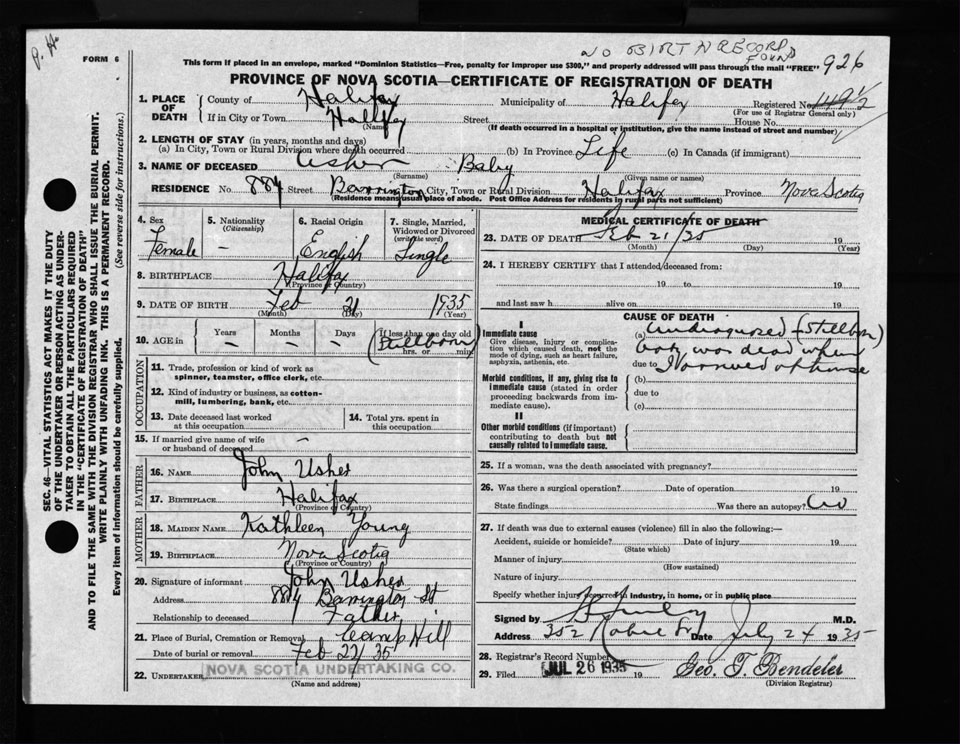 P. H.
FORM 6
NO BIRTH RECORD FOUND
926
This form if placed in an envelope, marked "Dominion Statistics—Free, penalty for improper use $300," and properly addressed will pass through the mail "FREE"
PROVINCE OF NOVA SCOTIA—CERTIFICATE OF REGISTRATION OF DEATH
SEC. 46—VITAL STATISTICS ACT MAKES IT THE DUTY
OF THE UNDERTAKER OR PERSON ACTING AS UNDER-
TAKER TO OBTAIN ALL THE PARTICULARS REQUIRED
IN THE "CERTIFICATE OF REGISTRATION OF DEATH"
AND TO FILE THE SAME WITH THE DIVISION REGISTRAR WHO SHALL ISSUE THE BURIAL PERMIT.
WRITE PLAINLY WITH UNFADING INK. THIS IS A PERMANENT RECORD.
Every item of information should be carefully supplied. (See reverse side for instructions.)
1. PLACE OF DEATH
County of Halifax Municipality of Halifax Registered No.
(For use of Registrar General only)
If in City or Town Halifax Street House No.
(Name) (If death occurred in a hospital or institution, give the name instead of street and number)
2. LENGTH OF STAY (in years, months and days)
(a) In City, Town or Rural Division where death occurred (b) In Province Life (c) In Canada (if immigrant)
3. NAME OF DECEASED Usher Baby
(Surname) (Given name or names)
RESIDENCE No. 884 Street Barrington City, Town or Rural Division Halifax Province Nova Scotia
(Residence means usual place of abode. Post Office Address for residents in rural parts not sufficient)
4. Sex Female
5. Nationality (Citizenship) –
6. Racial Origin English
7. Single, Married, Widowed or Divorced (write the word) Single
8. BIRTHPLACE Halifax
(Province or Country)
9. DATE OF BIRTH Feb 21 1935
(Month) (Day) (Year)
10. AGE in Years – Months – Days –
If less than one day old
Stillborn
hrs. or min.
OCCUPATION
11. Trade, profession or kind of work as spinner, teamster, office clerk, etc.
12. Kind of industry or business, as cotton-mill, lumbering, bank, etc.
13. Date deceased last worked at this occupation
14. Total yrs. spent in this occupation
15. If married give name of wife or husband of deceased –
FATHER
16. NAME John Usher
17. BIRTHPLACE Halifax
(Province or Country)
MOTHER
18. MAIDEN NAME Kathleen Young
19. BIRTHPLACE Nova Scotia
(Province or Country)
20. Signature of informant John Usher
Address 884 Barrington St
Relationship to deceased Father
21. Place of Burial, Cremation or Removal Camp Hill
Date of burial or removal Feb 22/35
22. UNDERTAKER NOVA SCOTIA UNDERTAKING CO.
(Name and address)
MEDICAL CERTIFICATE OF DEATH
23. DATE OF DEATH Feb 21/35 19
(Month) (Day) (Year)
24. I HEREBY CERTIFY that I attended deceased from:
19 to 19
and last saw h alive on 19
CAUSE OF DEATH
I
Immediate cause
Give disease, injury or complication which caused death, not the mode of dying, such as heart failure, asphyxia, asthenia, etc.
(a) Undiagnosed (Stillborn)
was dead when
due to I arrived at house
Morbid conditions, if any, giving rise to immediate cause (stated in order proceeding backwards from immediate cause).
(b)
due to
(c)
II
Other morbid conditions (if important) contributing to death but not causally related to immediate cause.
25. If a woman, was the death associated with pregnancy?
26. Was there a surgical operation? Date of operation 19
State findings Was there an autopsy? No
27. If death was due to external causes (violence) fill in also the following:—
Accident, suicide or homicide? Date of injury 19
(State which)
Manner of injury
(How sustained)
Nature of injury
Specify whether injury occurred in industry, in home, or in public place
Signed by M.D.
Address 352 Robie St Date July 24 1935
28. Registrar's Record Number
29. Filed JUL 26 1935 19 Geo. T. Bendeler
(Division Registrar)